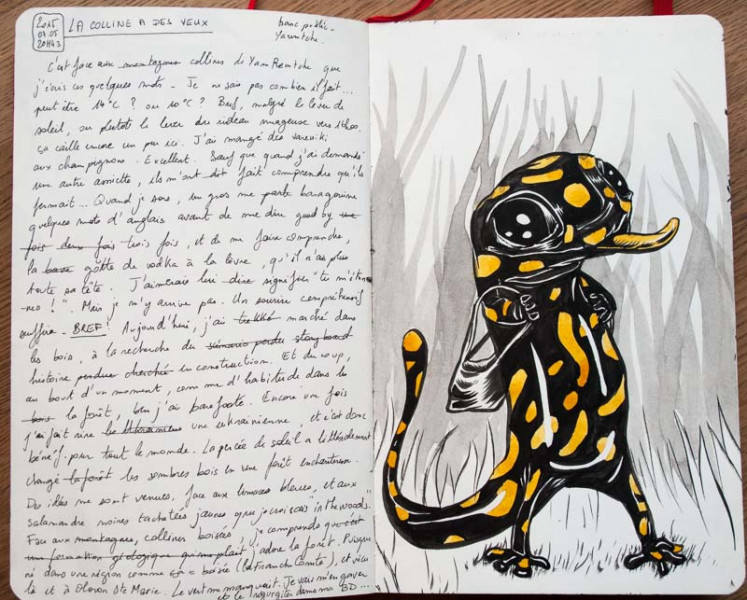 2015
07.05
20H43
LA COLLINE A DES YEUX
banc public
Yaremtche.
C'est face aux montagnes collines de Yam Remtche que
j'écris ces quelques mots. Je ne sais pas combien il fait...
peut être 14°C ? ou 10°C ? Bref, malgré le lever de
soleil, ou plutôt le lever du rideau nuageux vers
ça caille encore un peu ici. J'ai mangé des vareniki
aux champignons. Excellent. Sauf que quand j'ai demandé
une autre assiette, ils m'ont dit fait comprendre qu'ils
fermait... Quand je sors, un gros me parle baragouine
quelques mots d'anglais avant de me dire good by une
fois deux fois trois fois, et de me faire comprendre,
la goutte de vodka à la lèvre, qu'il n'a plus
toute sa tête. J'aimerais lui dire signifier "tu m'éton-
-nes !". Mais je m'y arrive pas. Un sourire compréhensif
suffira. BREF ! Aujourd'hui, j'ai trekké marché dans
les bois, à la recherche du scénario perdu storyboard
histoire perdue cherchée en construction. Et du coup,
au bout d'un moment, comme d'habitude dans les
bois la forêt, ben j'ai barefooté. Encore une fois
j'ai fait rire une ukrainienne, et c'est donc
bénéf. pour tout le monde. La percée de soleil a littéralement
changé la forêt les sombres bois en une forêt enchanteresse.
Des idées me sont venues, face aux limaces bleues, et aux
salamandre noires tachetées jaunes que je croisais "in the woods".
Face aux montagnes, collines boisées, je comprends que c'est
une formation géologique qui me plait, j'adore la forêt. Puisque
né dans une région comme boisée (la Franche Comté), et vécu
là et à Oloron Ste Marie. Le vert me manquait. Je vais m'en gaver
et le régurgiter dans ma BD...